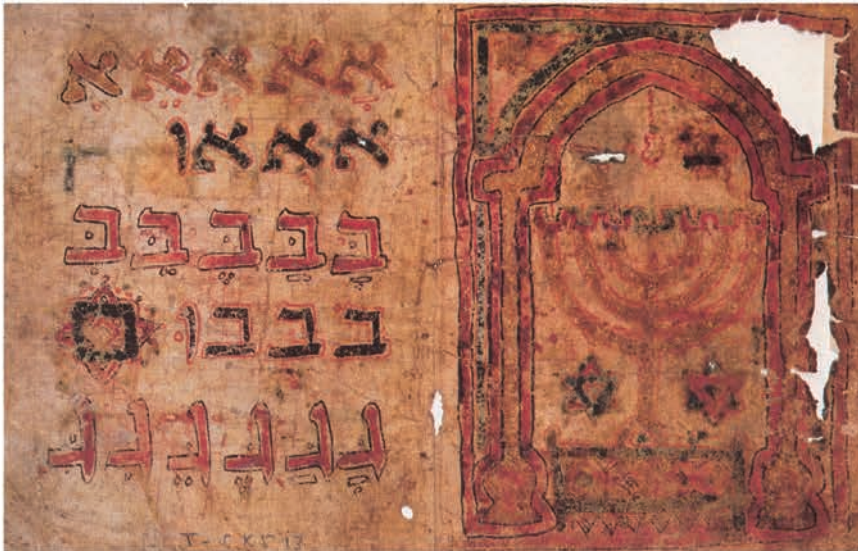 א א א א א
א א א ו
בּ בּ בּ בּ בּ
ב ב ב ו ם
ג ג ג ג ג ג
T-S K5.13